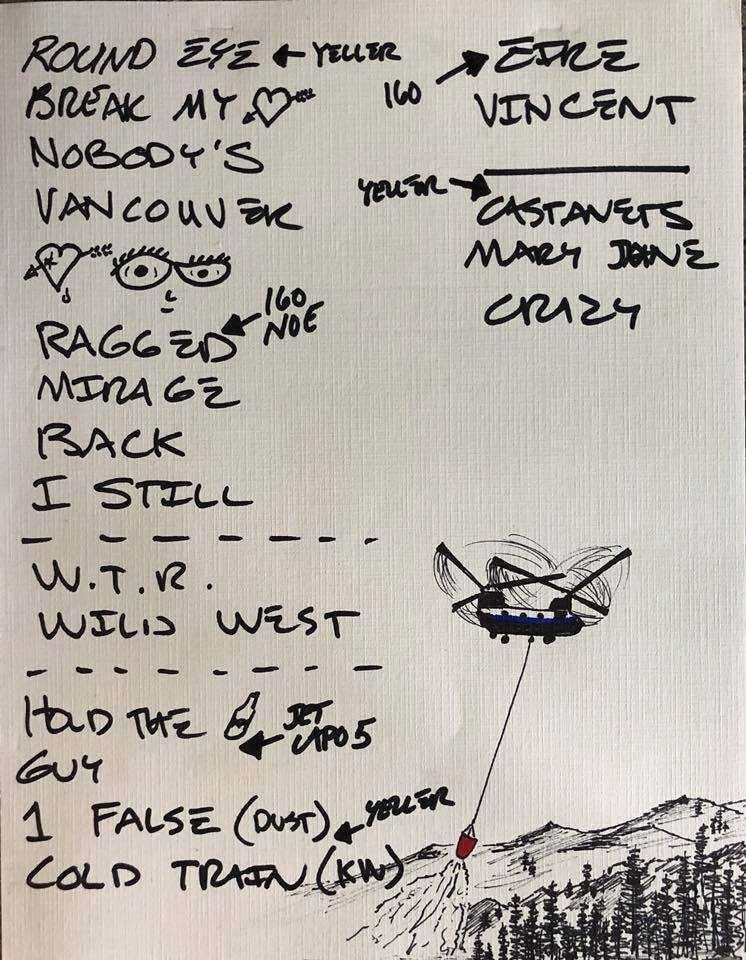 ROUND EYE ← YELLER
BREAK MY
NOBODY'S
VANCOUVER
160
NOE
RAGGED
MIRAGE
BACK
I STILL
W.T.R.
WILD WEST
HOLD THE
JET
CAPO 5
GUY
1 FALSE (DUST) YELLER
COLD TRAIN (KW)
EIRE
160
VINCENT
YELLER
CASTANETS
MARY JANE
CRAZY